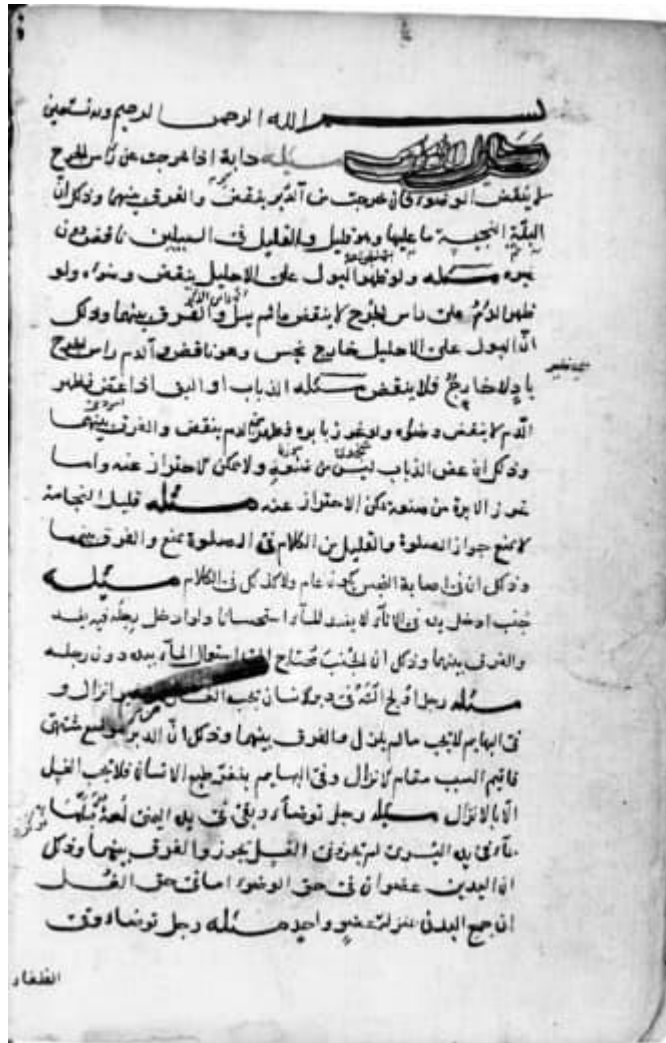 بسم الله الرحمن الرحيم وبه نستعين
مسئله دابة اذا خرجت عن رأس الجرح
لا ينقض الوضوء فان خرجت من الدبر ينقض والفرق بينهما وذلك ان
النجسة ما عليها وهو قليل والقليل فى السبيلين ناقض دون
غيره مسئله ولو ظهر البول على الاحليل ينقض وضوءه ولو
ظهر الدم على رأس الجرح لا ينقض ما لم يسل والفرق بينهما وذلك
ان البول على الاحليل خارج نجس وهو ناقض والدم رأس الجرح
باد لا خارج فلا ينقض مسئله الذباب او البق اذا عض فظهر
الدم لا ينقض وضوءه ولو غرز بابره فظهر الدم ينقض والفرق بينهما
وذلك ان عض الذباب ليس من صنعه ولا يمكن الاحتراز عنه واما
غرز الابرة من صنعه يمكن الاحتراز عنه مسئله قليل النجاسة
لا يمنع جواز الصلوة والقليل من الكلام فى الصلوة يمنع والفرق بينهما
وذلك ان فى اصابة النجس يكون عام ولا كذلك فى الكلام مسئله
جنب ادخل يده فى الاناء لا يفسد الماء استحسانا ولو ادخل رجله فيه يفسد
والفرق بينهما وذلك ان الجنب يحتاج استعمال الماء بيده دون رجله
مسئله رجل اولج فى دبر انسان يجب انزال و
فى البهايم لا يجب ما لم ينزل والفرق بينهما وذلك ان الدبر موضع مشتهى
فاقيم السبب مقام الانزال وفى البهايم ينفر طبع الانسان فلا يجب الغسل
الا بالانزال مسئله رجل توضأ وبقى فى يده اليمنى لمعة
بماء فى يده اليسرى لم يجز وفى الغسل يجوز والفرق بينهما وذلك
ان اليدين عضوان فى حق الوضوء اما فى حق الغسل
ان جميع البدن بمنزلة عضو واحد مسئله رجل توضأ وفى